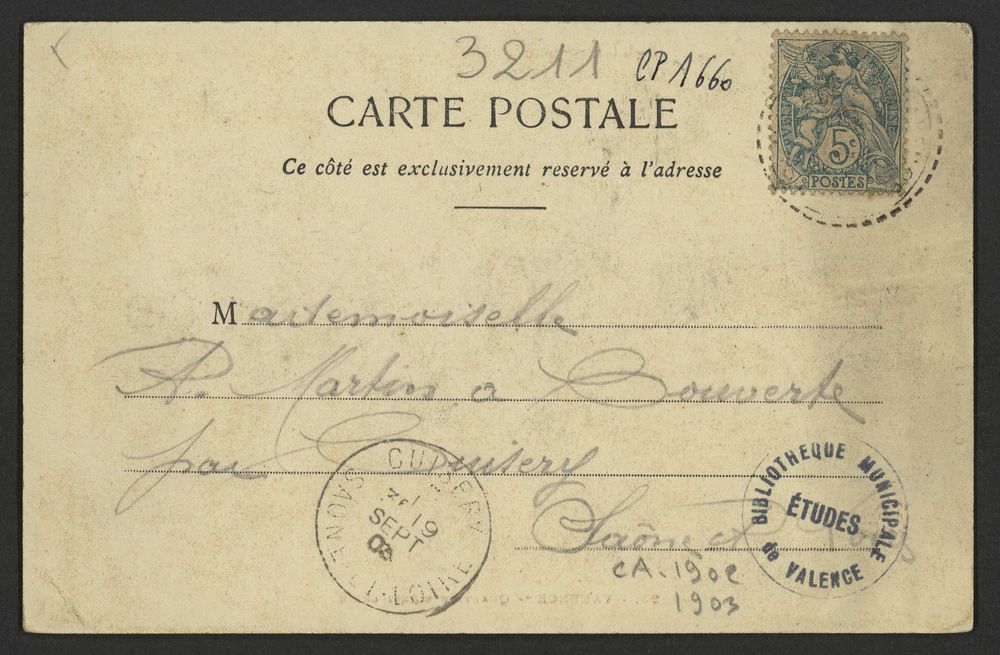 3211 CP 1660
CARTE POSTALE
Ce côté est exclusivement reservé à l'adresse
5c
POSTES
Mademoiselle
A. Martin a Couverte
par Cuisery
Saône et Loire
CUISERY
19
SEPT
SAONE-ET-LOIRE
BIBLIOTHEQUE MUNICIPALE
ÉTUDES
de VALENCE
CA. 1902
1903